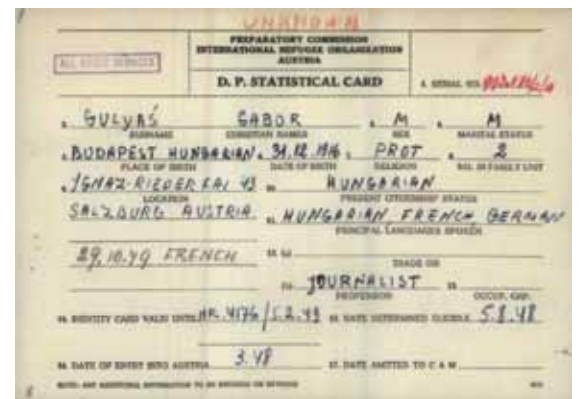 UNKNOWN
PREPARATORY COMMISSION
INTERNATIONAL REFUGEE ORGANIZATION
AUSTRIA
D. P. STATISTICAL CARD
SERIAL NO.
GULYAŚ GABOR M M
SURNAME CHRISTIAN NAMES SEX MARITAL STATUS
BUDAPEST HUNGARIAN 31.12.1916 PROT 2
PLACE OF BIRTH DATE OF BIRTH RELIGION NO. IN FAMILY UNIT
IGNAZ-RIEDER KAI 43 HUNGARIAN
LOCATION PRESENT CITIZENSHIP STATUS
SALZBURG AUSTRIA HUNGARIAN FRENCH GERMAN
PRINCIPAL LANGUAGES SPOKEN
29.10.49 FRENCH
TRADE OR
JOURNALIST
PROFESSION OCCUP. CAP.
IDENTITY CARD VALID UNTIL NR. 4176/5.2.49 DATE DETERMINED ELIGIBLE 5.8.48
DATE OF ENTRY INTO AUSTRIA 3.48 17. DATE AMITTED TO C & M
NOTE: ANY ADDITIONAL INFORMATION TO BE RECORDED ON REVERSE